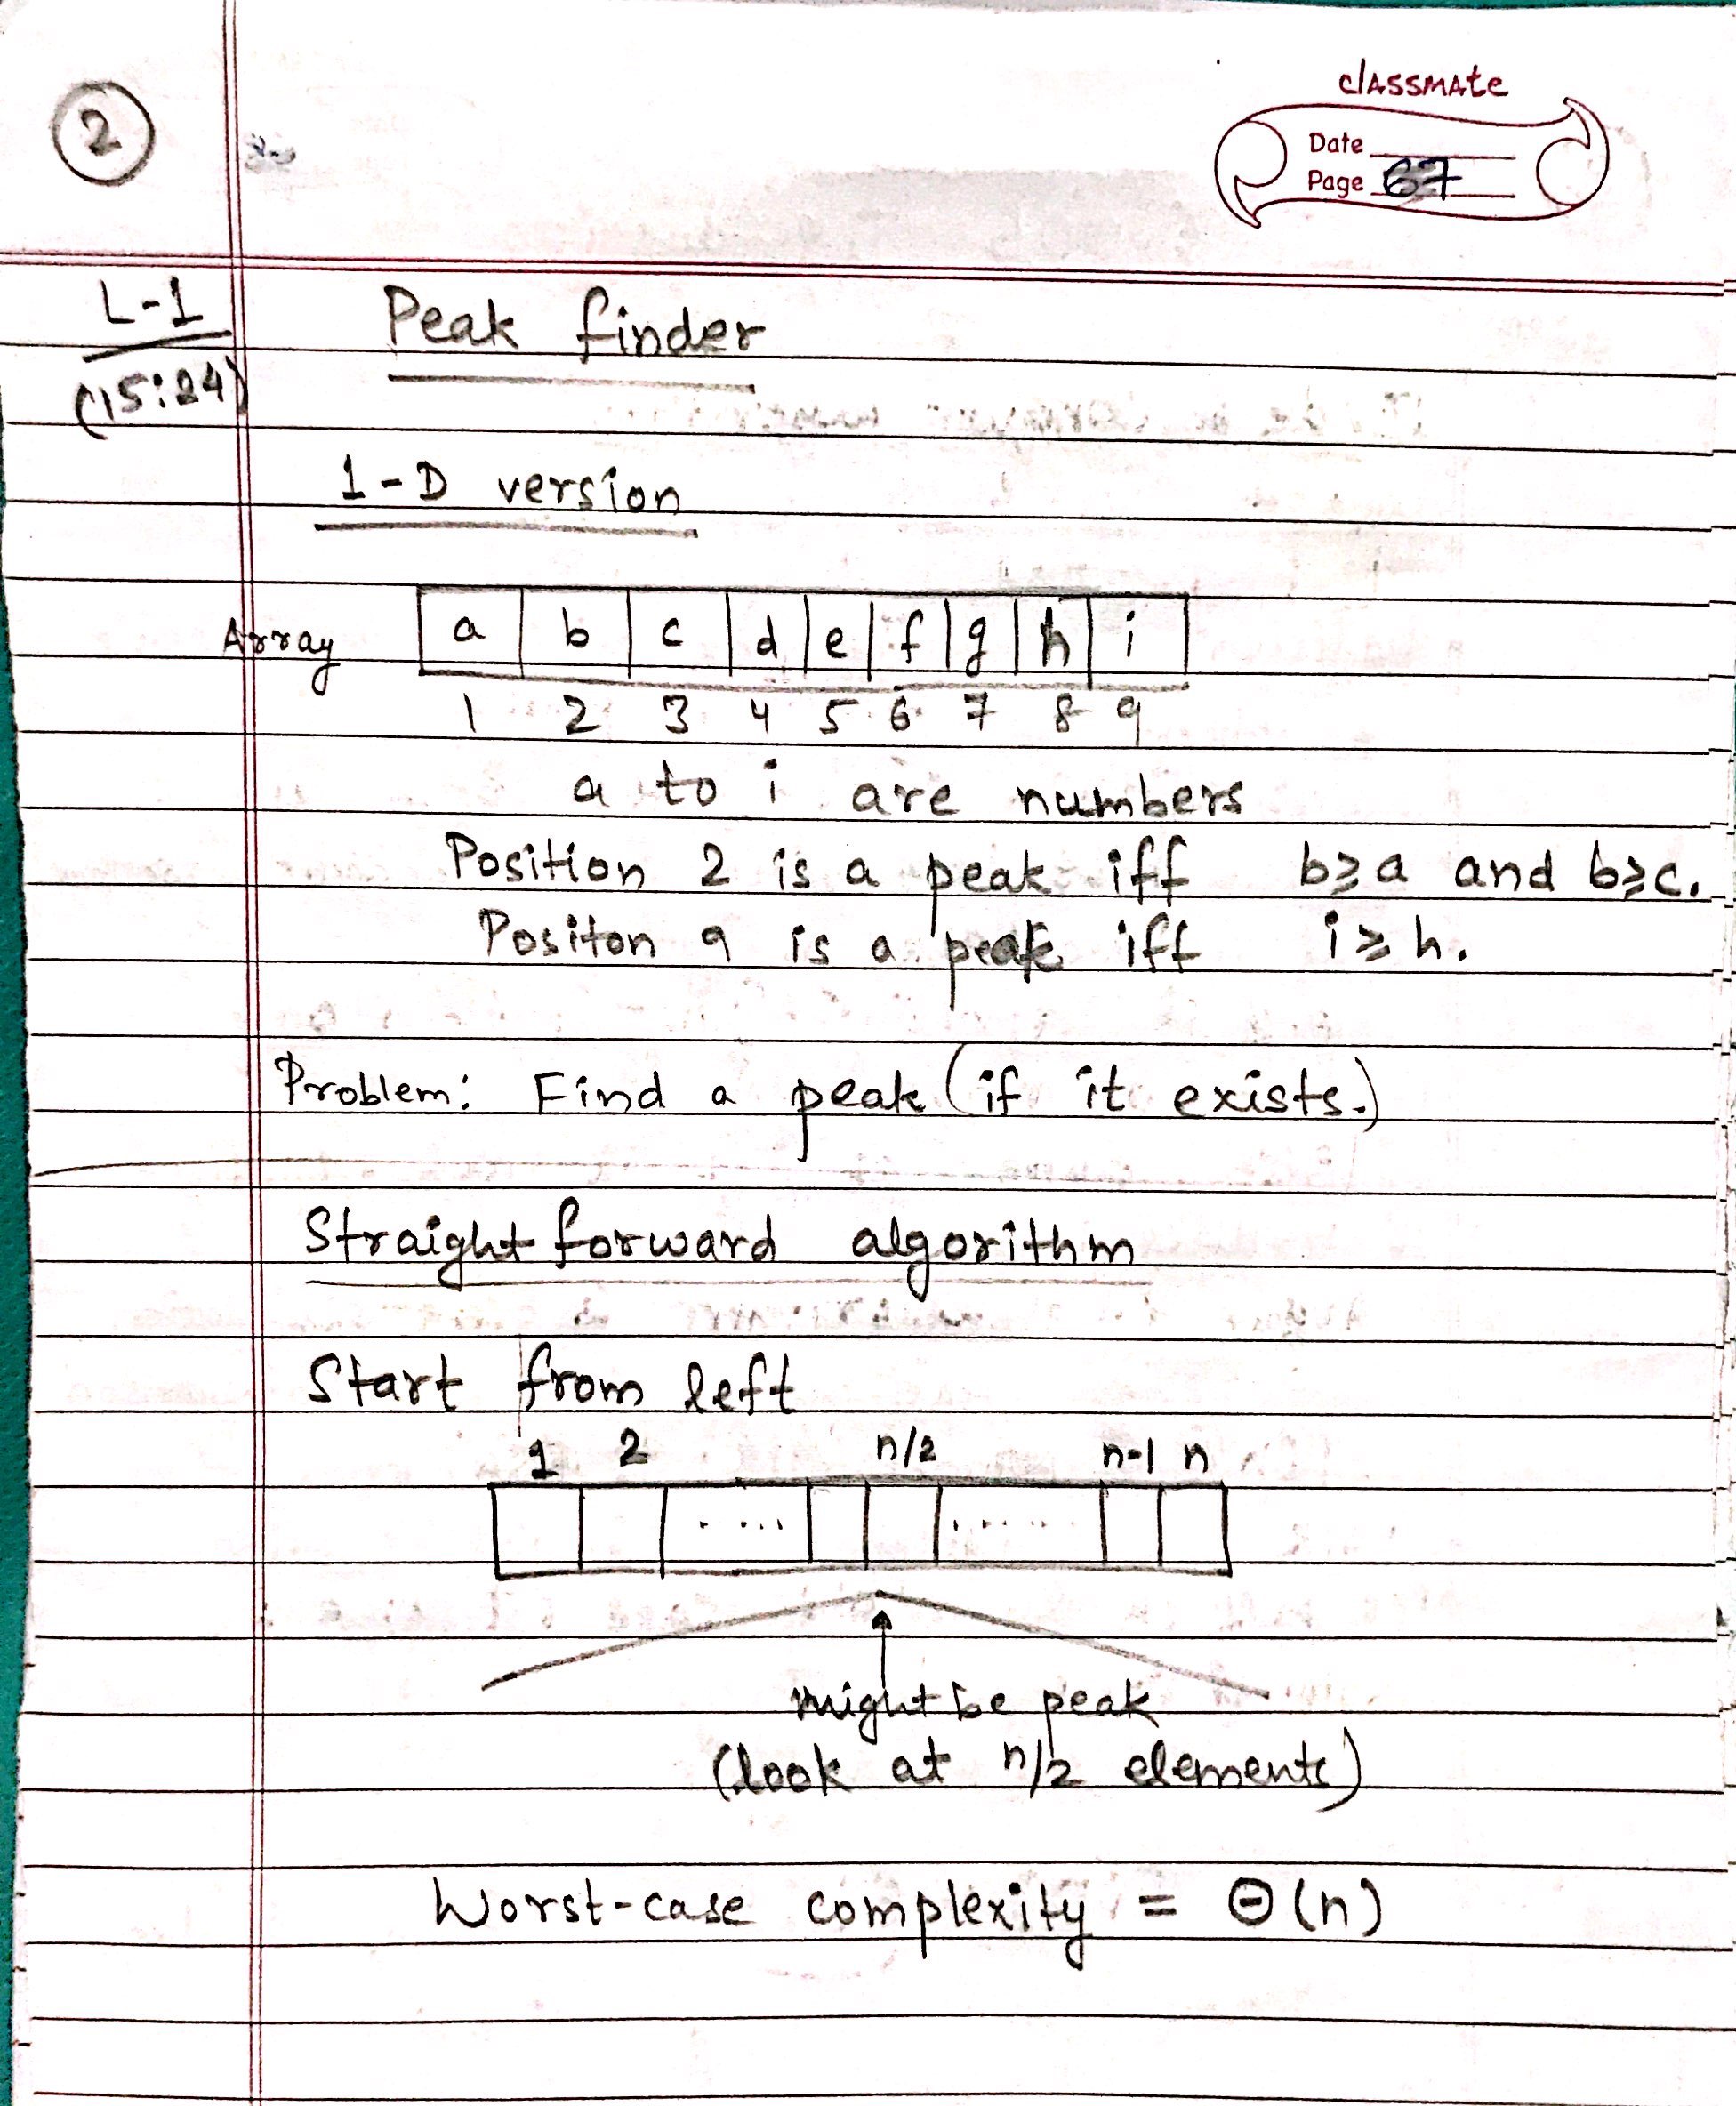 2
classmate
Date
Page 67
L-1
(15:24)
Peak finder
1-D version
Array a b c d e f g h i
1 2 3 4 5 6 7 8 9
a to i are numbers
Position 2 is a peak iff b≥a and b≥c.
Positon 9 is a peak iff i≥h.
Problem: Find a peak (if it exists.)
Straight forward algorithm
Start from left
1 2 n/2 n-1 n
..... ......
might be peak
(look at n/2 elements)
Worst-case complexity = Θ(n)